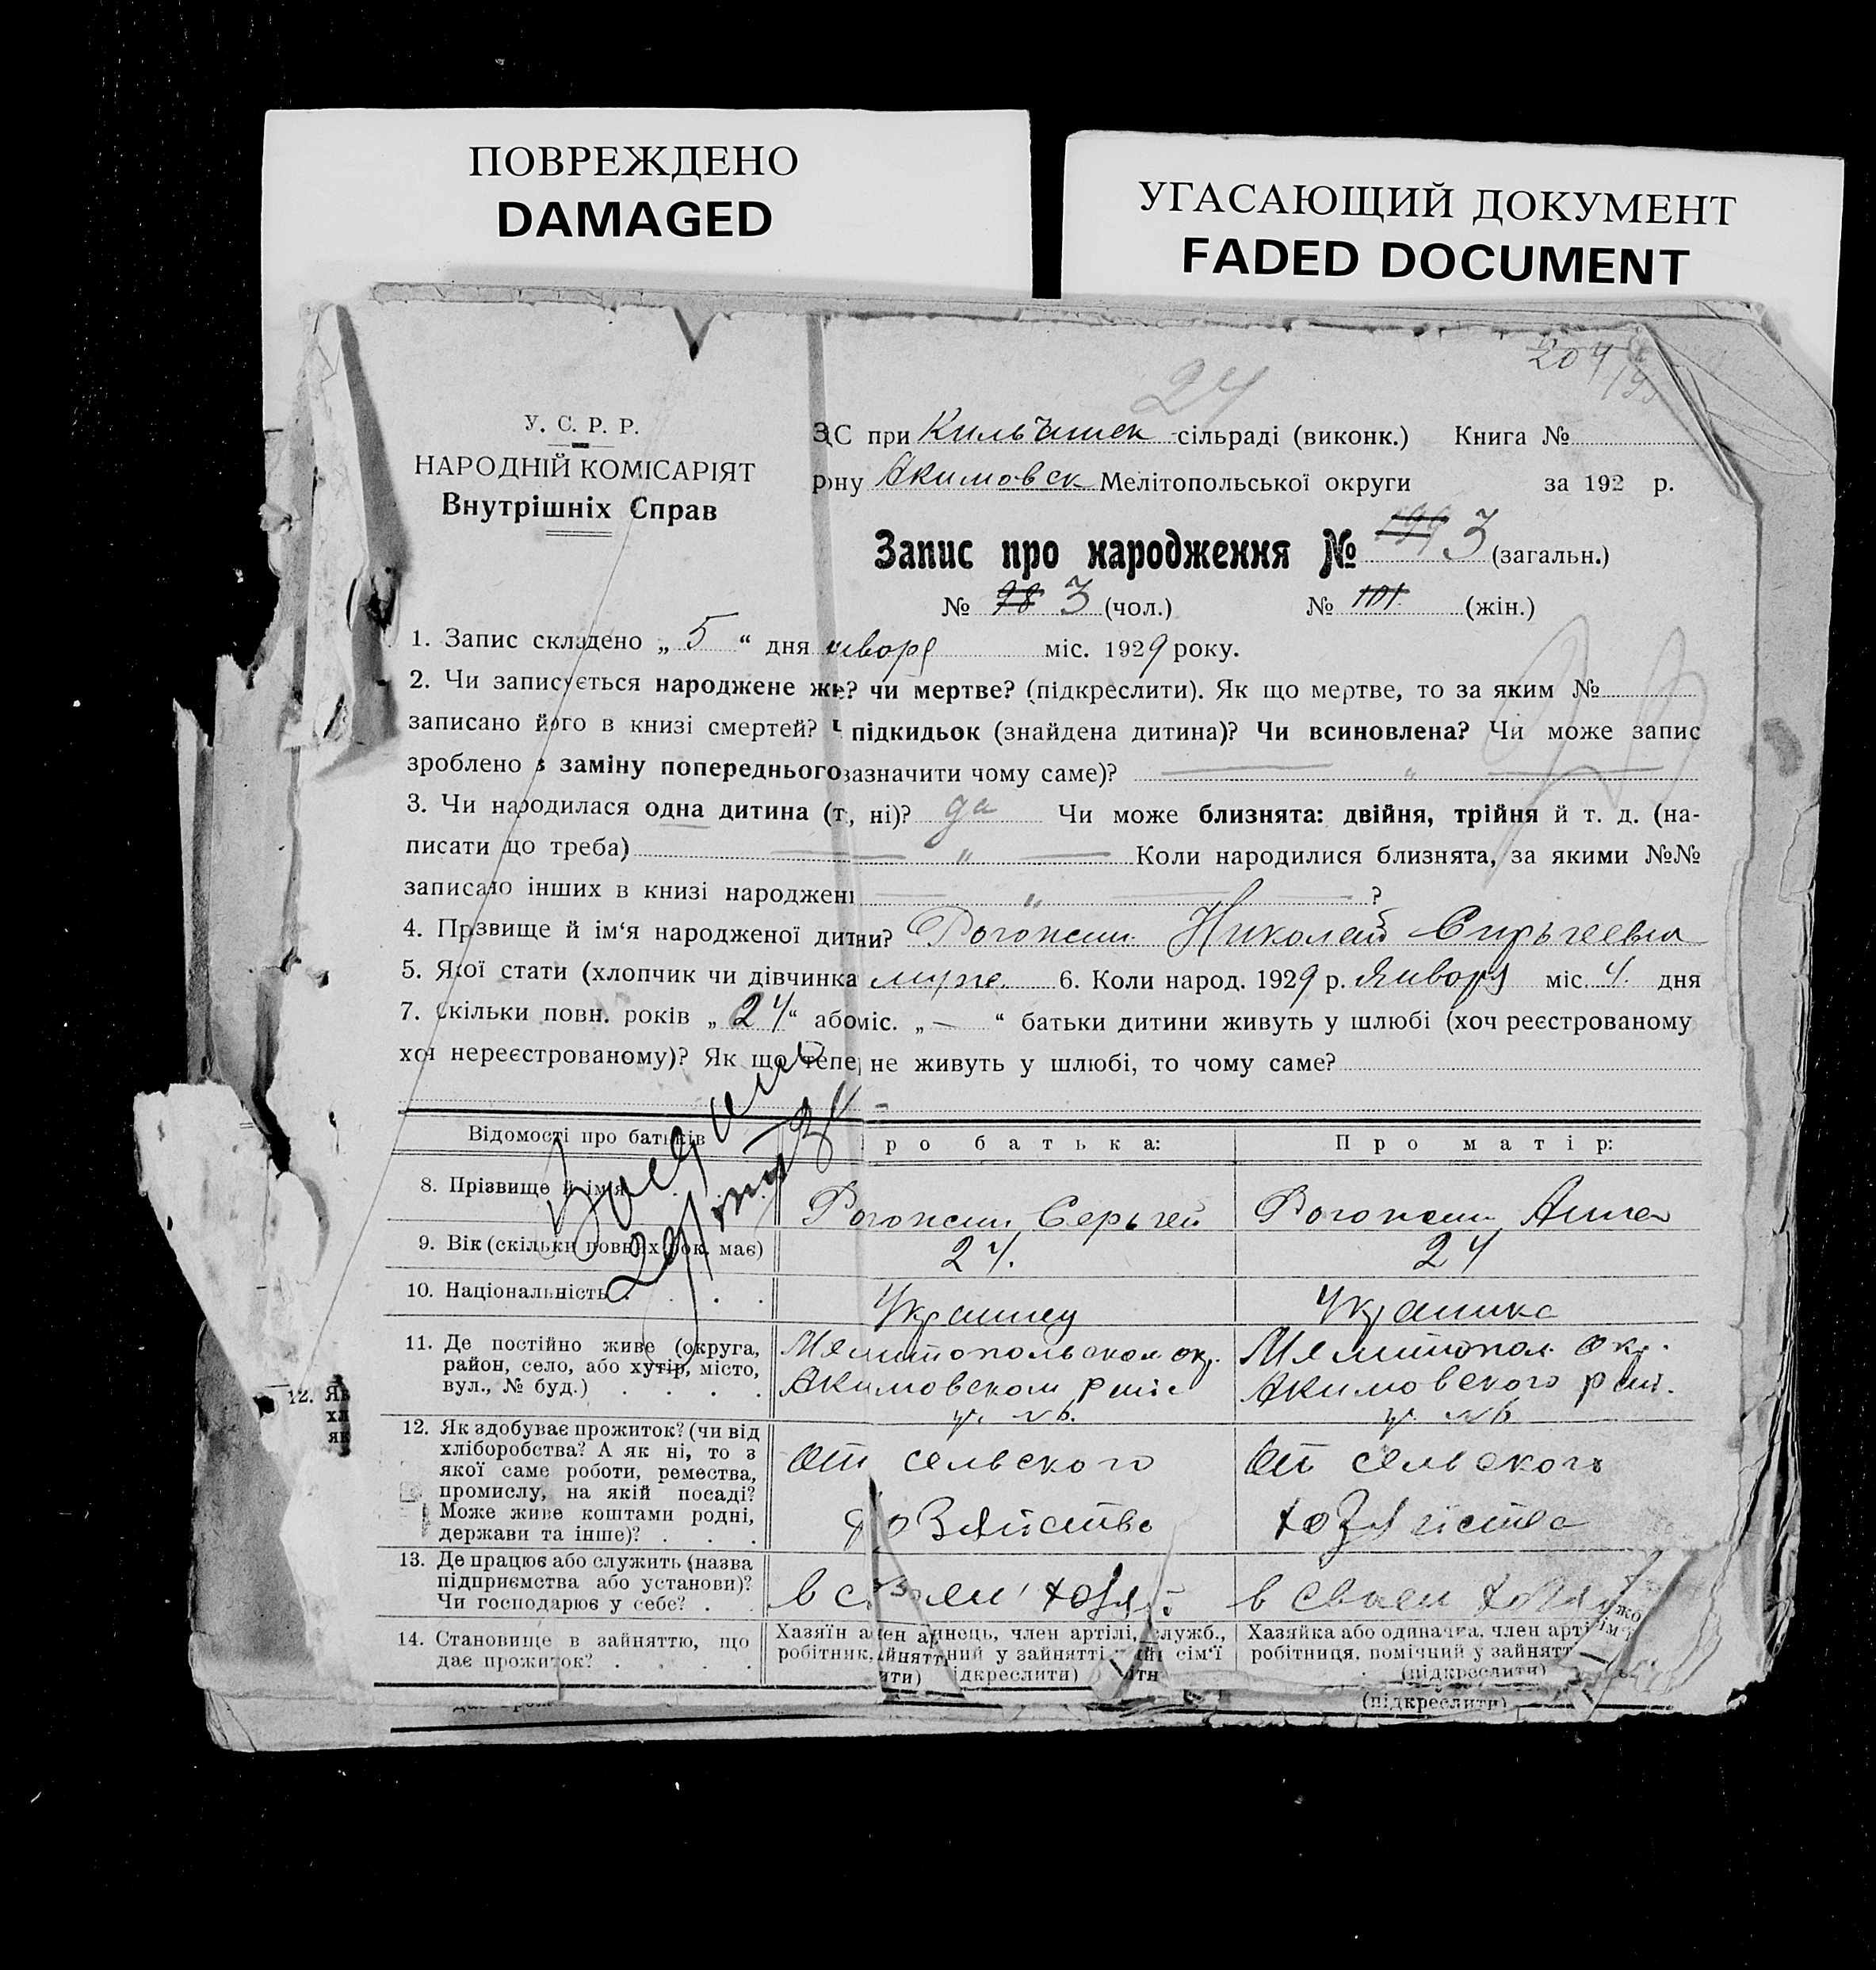 ПОВРЕЖДЕНО
DAMAGED
УГАСАЮЩИЙ ДОКУМЕНТ
FADED DOCUMENT
204
24
У. С. Р. Р.
НАРОДНІЙ КОМІСАРІЯТ
Внутрішніх Справ
ЗАС при сільраді (виконк.) Книга №
Акимовск Мелітопольської округи за 192 р.
Запис про народження № 199 3 (загальн.)
№ 98 3 (чол.) № 101 (жін.)
1. Запис складено „ 5 “ дня января міс. 1929 року.
2. Чи записується народжене чи мертве? (підкреслити). Як що мертве, то за яким №
записано його в книзі смертей? підкидьок (знайдена дитина)? Чи всиновлена? Чи може запис
зроблено в заміну попереднього зазначити чому саме)? — „ —
3. Чи народилася одна дитина ні)? да Чи може близнята: двійня, трійня й т. д. (на-
писати що треба) — „ — Коли народилися близнята, за якими №№
записано інших в книзі народжені — „ — ?
4. Прізвище й ім‘я народженої дитини? Рогожин Николай
5. Якої стати (хлопчик чи дівчинка 6. Коли народ. 1929 р. Январь міс. 4. дня
7. Скільки повн. років „ 24 “ або міс. „ — “ батьки дитини живуть у шлюбі (хоч реєстрованому
хоч нереєстрованому)? Як що тепе не живуть у шлюбі, то чому саме?
Відомості про батьків р о б а т ь к а: П р о м а т і р:
8. Прізвище й ім‘я Рогожин Сергей Рогожин Анна
9. Вік (скільки повних рок. має) 24. 24
10. Національність . . . . Украинец Украинка
11. Де постійно живе (округа,
район, село, або хутір, місто,
вул., № буд.) . . . .
Мелитопольском окр. Мелитопол. окр.
Акимовском Акимовского
12. Як здобуває прожиток? (чи від
хліборобства? А як ні, то з
якої саме роботи, ремества,
промислу, на якій посаді?
Може живе коштами родні,
держави та інше)? . . .
От сельского От сельского
хозяйства хозяйства
13. Де працює або служить (назва
підприємства або установи)?
Чи господарює у себе? . .
в своем в своем
14. Становище в зайняттю, що
дає прожиток? . . . .
Хазяїн член артілі, служб., Хазяйка або одиначка, член арт
робітник, у зайнятті сім‘ї робітниця, помічний у зайнятт
ідкреслити) (підкреслити)
(підкреслити)
12. Як
хл
як